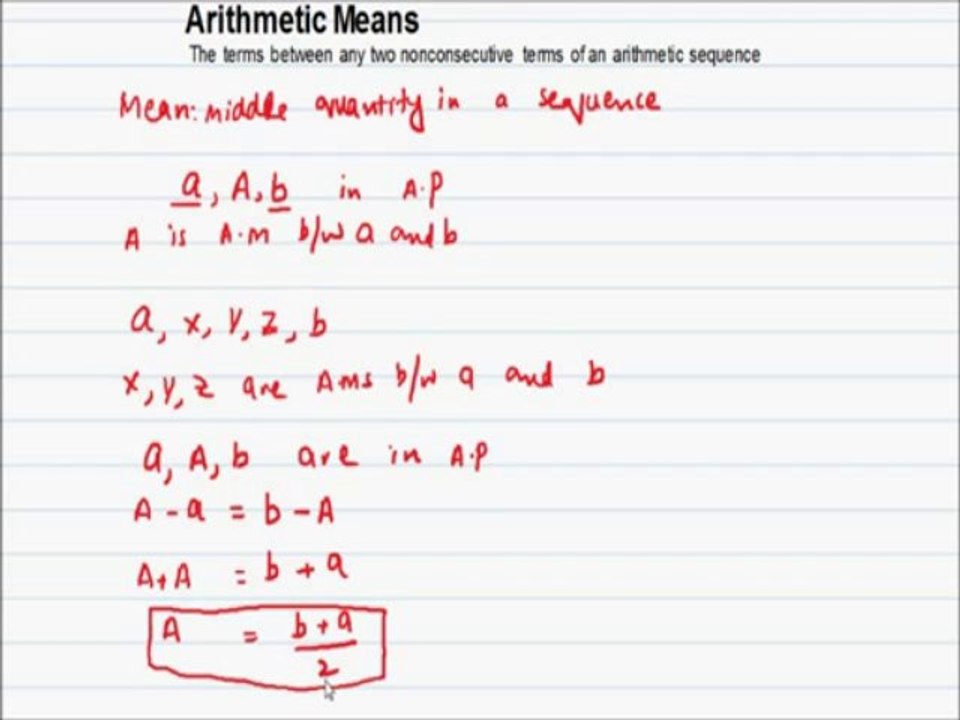 Arithmetic Means
The terms between any two nonconsecutive terms of an arithmetic sequence
Mean: middle quantity in a sequence
a, A, b in A.P
A is A.M b/w a and b
a, x, y, z, b
x, y, z are AMs b/w a and b
a, A, b are in A.P
A - a = b - A
A + A = b + a
A = b + a
2